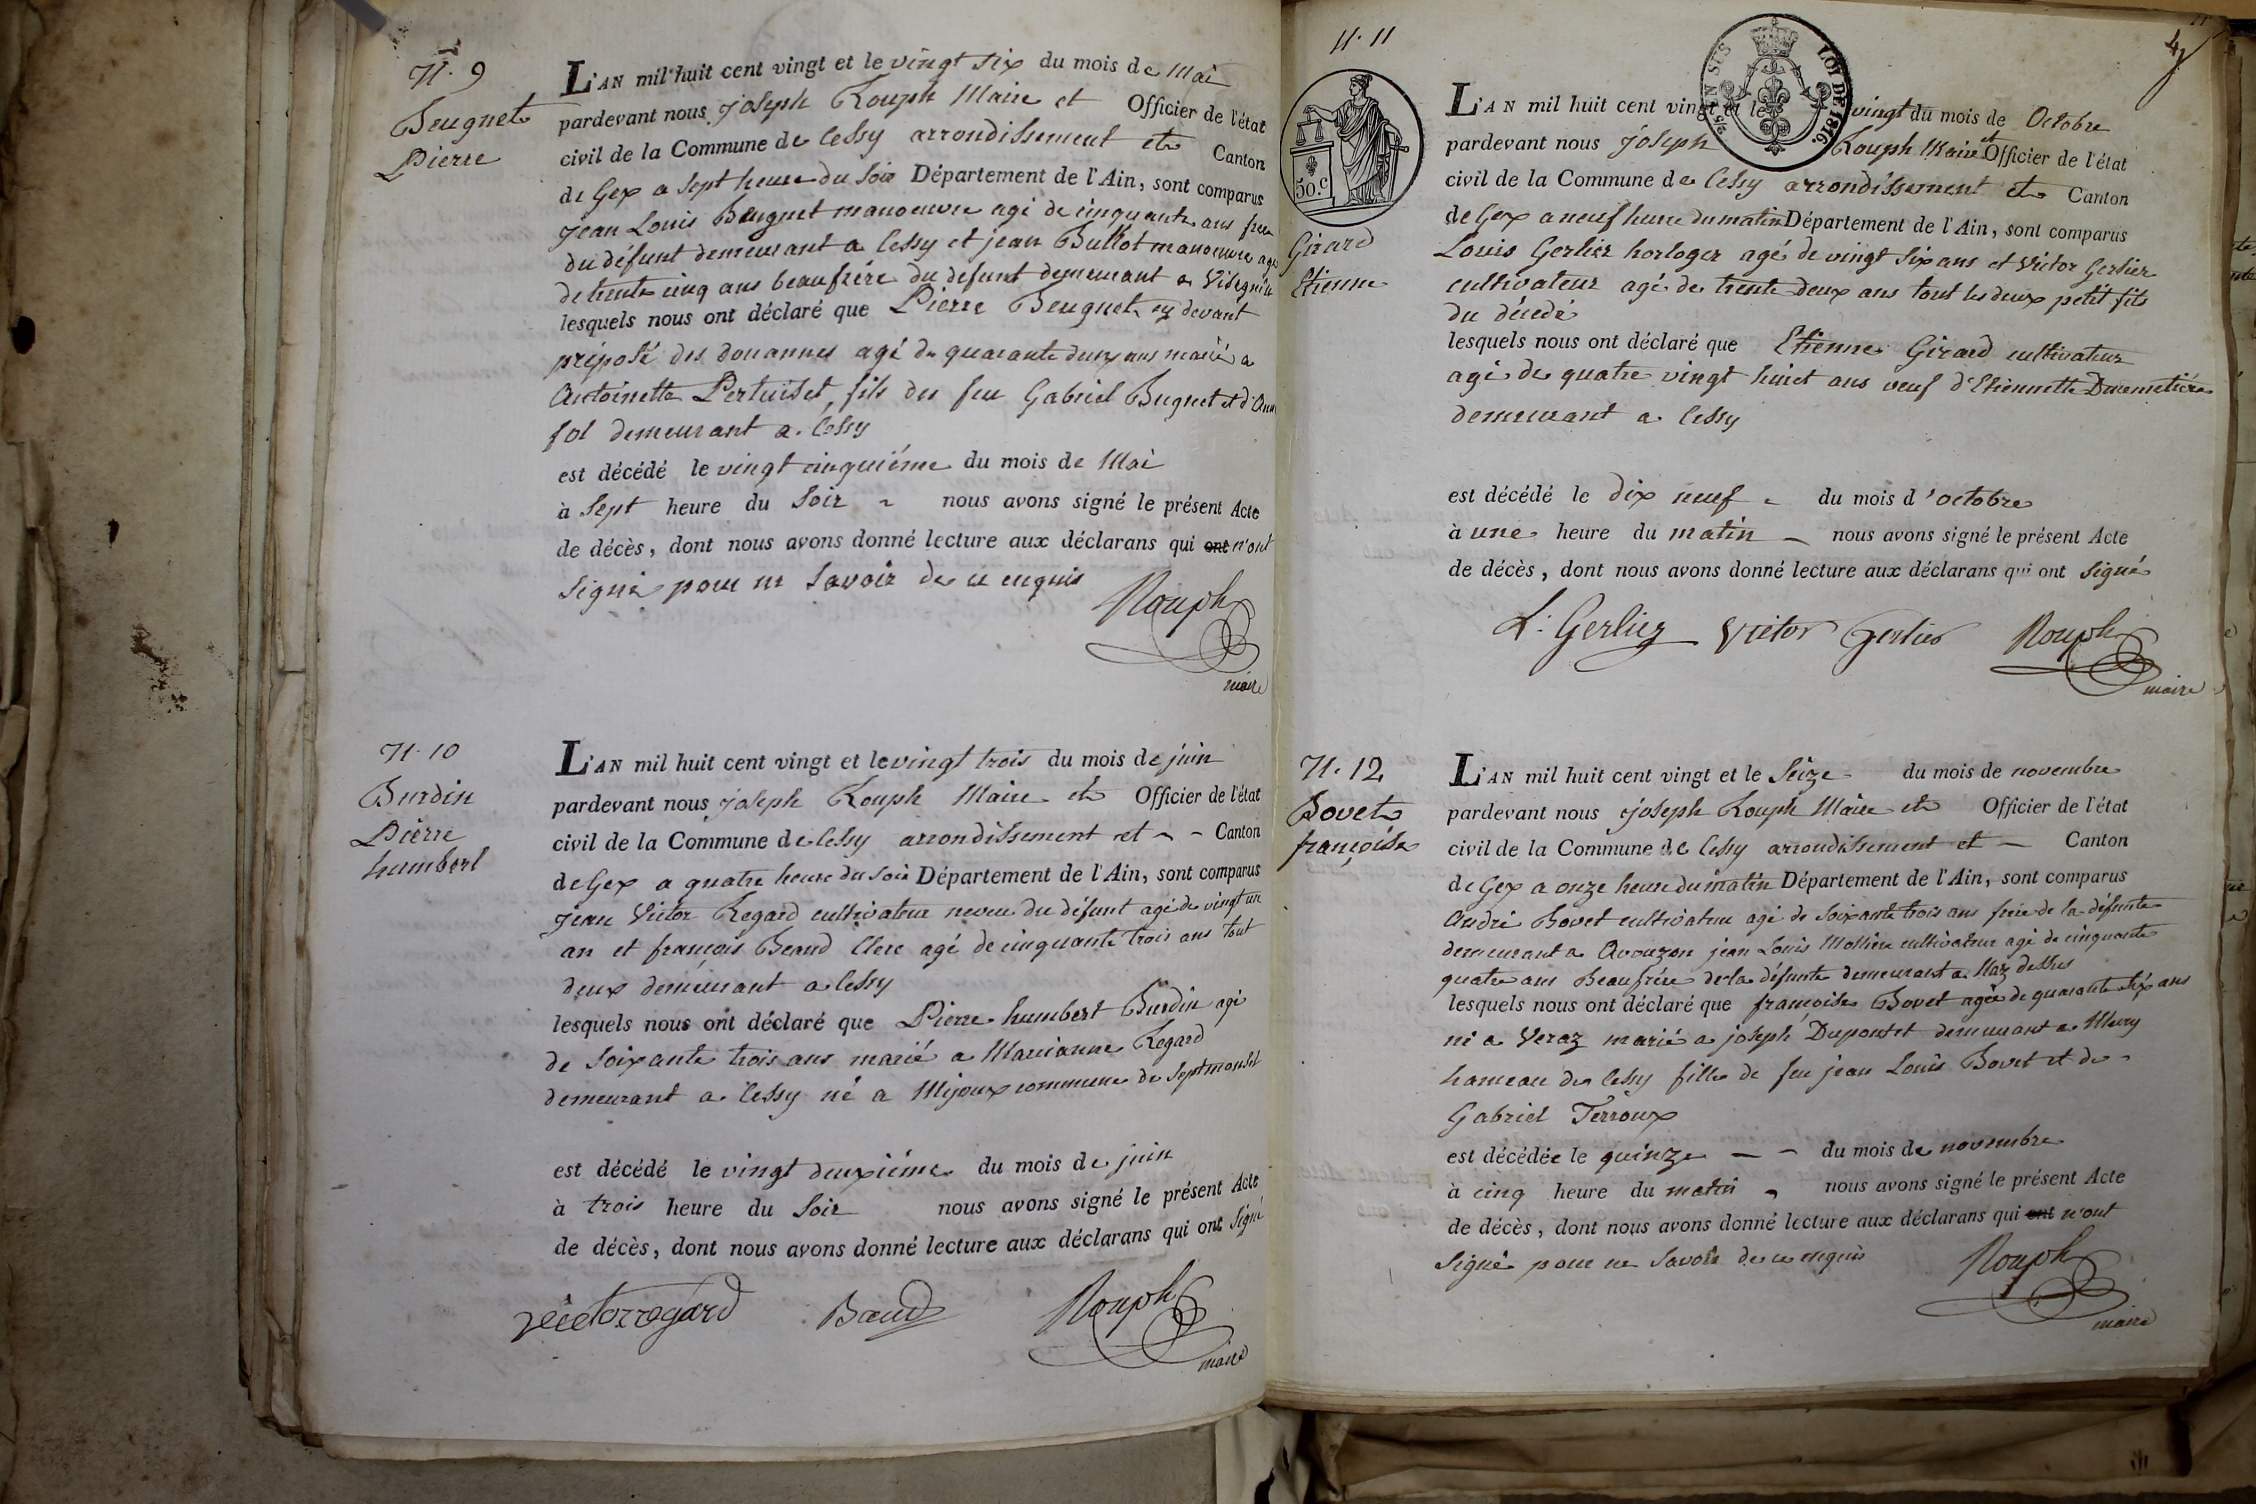 N. 9
Beugnet
Pierre
L'AN mil huit cent vingt et le vingt six du mois de Mai
pardevant nous joseph Rouph Maire et Officier de l'état
civil de la Commune de Cessy arrondissement et Canton
de Gex a sept heure du soir Département de l'Ain, sont comparus
jean Louis Beugnet manoeuvre agé de cinquante ans frere
du défunt demeurant a Cessy et jean Bullot manoeuvre agé
de trente cinq ans beaufrére du defunt demeurant a
lesquels nous ont déclaré que Pierre Beugnet cy devant
préposé des douannes agé de quarante deux ans marié a
Antoinette Pertuiset, fils du feu Gabriel Bugnet et d'Anne
fol demeurant a Cessy
est décédé le vingt cinquiéme du mois de Mai
à sept heure du soir ~ nous avons signé le présent Acte
de décès, dont nous avons donné lecture aux déclarans qui ont n'ont
signé pour ne savoir de ce enquis
Rouph
maire
N. 10
Burdin
Pierre
humbert
L'AN mil huit cent vingt et le vingt trois du mois de juin
pardevant nous joseph Rouph Maire et Officier de l'état
civil de la Commune de Cessy arrondissement et - - Canton
de Gex a quatre heure du soir Département de l'Ain, sont comparus
jean Victor Regard cultivateur neveu du défunt agé de vingt un
an et françois Beaud Clerc agé de cinquante trois ans tout
deux demeurant a Cessy
lesquels nous ont déclaré que Pierre humbert Burdin agé
de soixante trois ans marié a Marianne Regard
demeurant a Cessy né a Mijoux commune de Septmoncel
est décédé le vingt deuxiéme du mois de juin
à trois heure du soir nous avons signé le présent Acte
de décès, dont nous avons donné lecture aux déclarans qui ont signé
victor regard Baud Rouph
maire
N. 11
SIS LOI DE 1816
50.c
Girard
Etienne
L'AN mil huit cent vingt et le vingt du mois de Octobre
pardevant nous joseph Rouph Maire et Officier de l'état
civil de la Commune de Cessy arrondissement et Canton
de Gex a neuf heure du matin Département de l'Ain, sont comparus
Louis Gerlier horloger agé de vingt six ans et Victor Gerlier
cultivateur agé de trente deux ans tout les deux petit fils
du décédé
lesquels nous ont déclaré que Etienne Girard cultivateur
agé de quatre vingt huict ans veuf d'Etiennette Ducimetiére
demeurant a Cessy
est décédé le dix neuf - du mois d'octobre
à une heure du matin - nous avons signé le présent Acte
de décès, dont nous avons donné lecture aux déclarans qui ont signé
L. Gerlier Victor Gerlier Rouph
maire
N. 12
Bovet
françoise
L'AN mil huit cent vingt et le seize du mois de novembre
pardevant nous joseph Rouph Maire et Officier de l'état
civil de la Commune de Cessy arrondissement et - Canton
de Gex a onze heure du matin Département de l'Ain, sont comparus
André Bovet cultivateur agé de soixante trois ans frére de la défunte
demeurant a Avouzon jean Louis Mollier cultivateur agé de cinquante
quatre ans Beaufrére de la défunte demeurant a Naz dessus
lesquels nous ont déclaré que françoise Bovet agée de quarante six ans
né a Veraz marié a joseph Dupontet demeurant a
hameau de Cessy fille de feu jean Louis Bovet et de -
Gabriel Terroux
est décédée le quinze - - du mois de novembre
à cinq heure du matin - nous avons signé le présent Acte
de décès, dont nous avons donné lecture aux déclarans qui ont n'ont
signé pour ne savoir de ce enquis
Rouph
maire